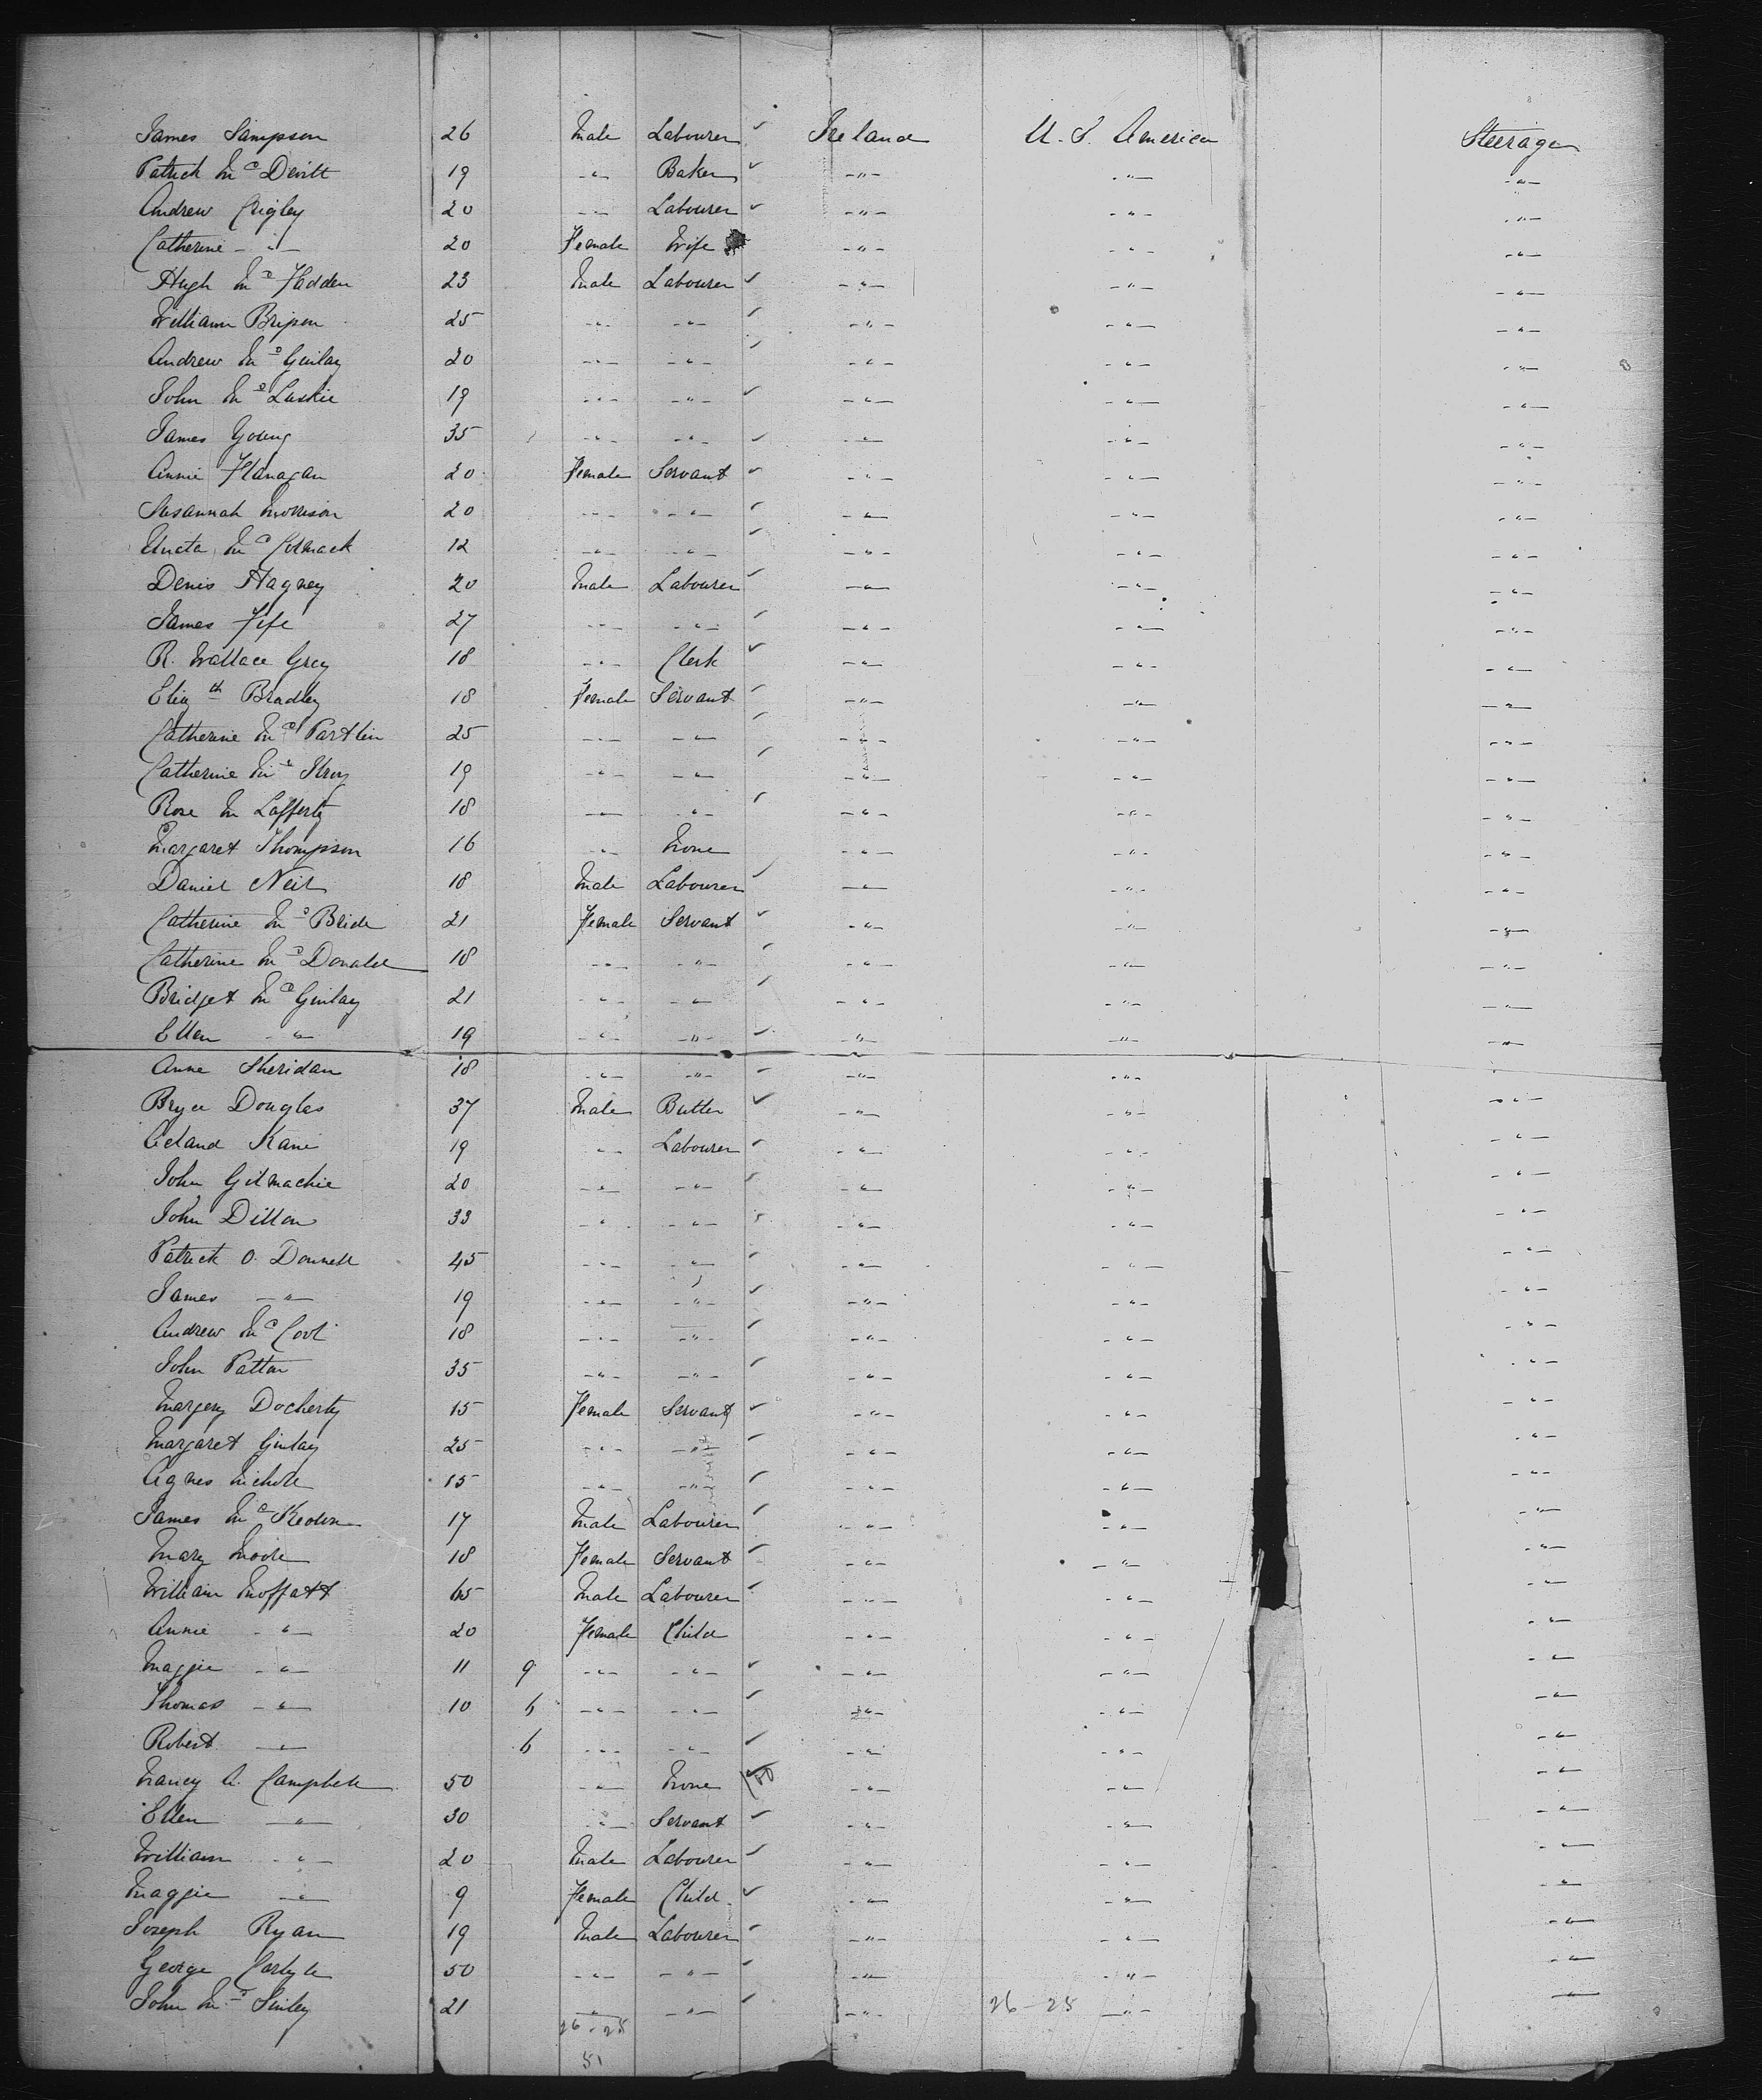 James Sampson 26 Male Labourer ✓ Ireland U. S. America Steerage
Patrick McDevitt 19 -"- Baker ✓ -"- -"- -"-
Andrew Quigley 20 -"- Labourer ✓ -"- -"- -"-
Catherine -"- 20 Female Wife -"- -"- -"-
Hugh McFadden 23 Male Labourer ✓ -"- -"- -"-
William 25 -"- -"- ✓ -"- -"- -"-
Andrew McGinlay 20 -"- -"- ✓ -"- -"- -"-
John McLuskie 19 -"- -"- ✓ -"- -"- -"-
James Young 35 -"- -"- ✓ -"- -"- -"-
Annie Flanagan 20 Female Servant ✓ -"- -"- -"-
Susannah Morrison 20 -"- -"- ✓ -"- -"- -"-
McCormack 12 -"- -"- ✓ -"- -"- -"-
Denis Hagney 20 Male Labourer ✓ -"- -"- -"-
James Fife 27 -"- -"- ✓ -"- -"- -"-
R. Wallace Grey 18 -"- Clerk ✓ -"- -"- -"-
Elizth Bradley 18 Female Servant ✓ -"- -"- -"-
Catherine McPartlin 25 -"- -"- ✓ -"- -"- -"-
Catherine McIlroy 19 -"- -"- ✓ -"- -"- -"-
Rose M Lafferty 18 -"- -"- ✓ -"- -"- -"-
Margaret Thompson 16 -"- None -"- -"- -"-
Daniel Neil 18 Male Labourer ✓ -"- -"- -"-
Catherine McBride 21 Female Servant ✓ -"- -"- -"-
Catherine McDonald 18 -"- -"- ✓ -"- -"- -"-
Bridget McGinlay 21 -"- -"- ✓ -"- -"- -"-
Ellen -"- 19 -"- -"- ✓ -"- -"- -"-
Anne Sheridan 18 -"- -"- ✓ -"- -"- -"-
Bryce Douglas 37 Male Butler ✓ -"- -"- -"-
Kane 19 -"- Labourer ✓ -"- -"- -"-
John Gilmachie 20 -"- -"- ✓ -"- -"- -"-
John Dillon 33 -"- -"- ✓ -"- -"- -"-
Patrick O. Donnell 45 -"- -"- ✓ -"- -"- -"-
James -"- 19 -"- -"- ✓ -"- -"- -"-
Andrew McCool 18 -"- -"- ✓ -"- -"- -"-
John Patton 35 -"- -"- ✓ -"- -"- -"-
Margery Docherty 15 Female Servant ✓ -"- -"- -"-
Margaret Ginlay 25 -"- -"- ✓ -"- -"- -"-
Agnes Nicholl 15 -"- -"- ✓ -"- -"- -"-
James McKeown 17 Male Labourer ✓ -"- -"- -"-
Mary Moore 18 Female Servant ✓ -"- -"- -"-
William Moffatt 45 Male Labourer ✓ -"- -"- -"-
Annie -"- 20 Female Child -"- -"- -"-
Maggie -"- 11 9 -"- -"- ✓ -"- -"- -"-
Thomas -"- 10 6 -"- -"- ✓ -"- -"- -"-
Robert -"- 6 -"- -"- ✓ -"- -"- -"-
Nancy A. Campbell 50 -"- None ✓ 50 -"- -"- -"-
Ellen -"- 30 -"- Servant ✓ -"- -"- -"-
William -"- 20 Male Labourer ✓ -"- -"- -"-
Maggie -"- 9 Female Child ✓ -"- -"- -"-
Joseph Ryan 19 Male Labourer ✓ -"- -"- -"-
George Carlyle 50 -"- -"- ✓ -"- -"- -"-
John McGinley 21 -"- -"- ✓ -"- 26-25 -"- -"-
26-25
51